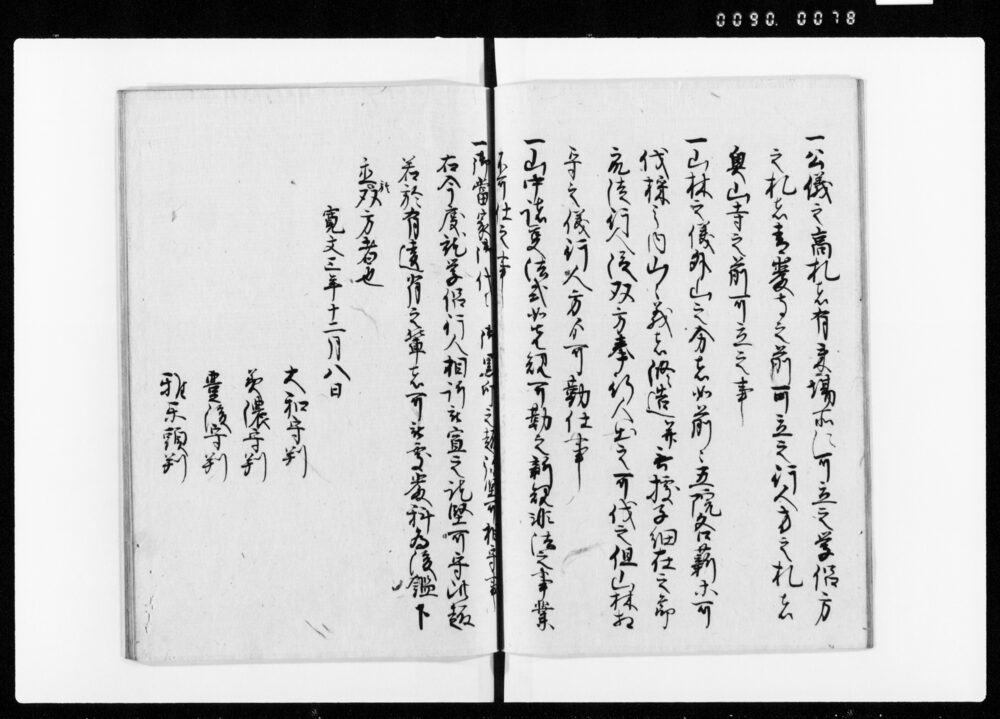 0090. 0078
一公儀之高札者有来場所江可立之学侶方
之札者青巌寺之前可立之行人方之札者
奥山寺之前可立之事
一山林之儀外山之分者如前々五院各薪木可
伐採之内山之義者修造并無拠子細在之節
衆徒行人従双方奉行人出之可伐之但山林相
守之儀行人方可勤仕事
一山中諸事法式如先規可勤之新規非法之事業
不可仕之事
一御當家御代々御黒印之趣 堅可相守事
右今度就学侶行人相論被宣之訖堅可守此趣
若於有違背之輩者可被處嚴科為後鑑下
立双方者也
寛文三年十二月八日
大和守判
美濃守判
豊後守判
雅楽頭判